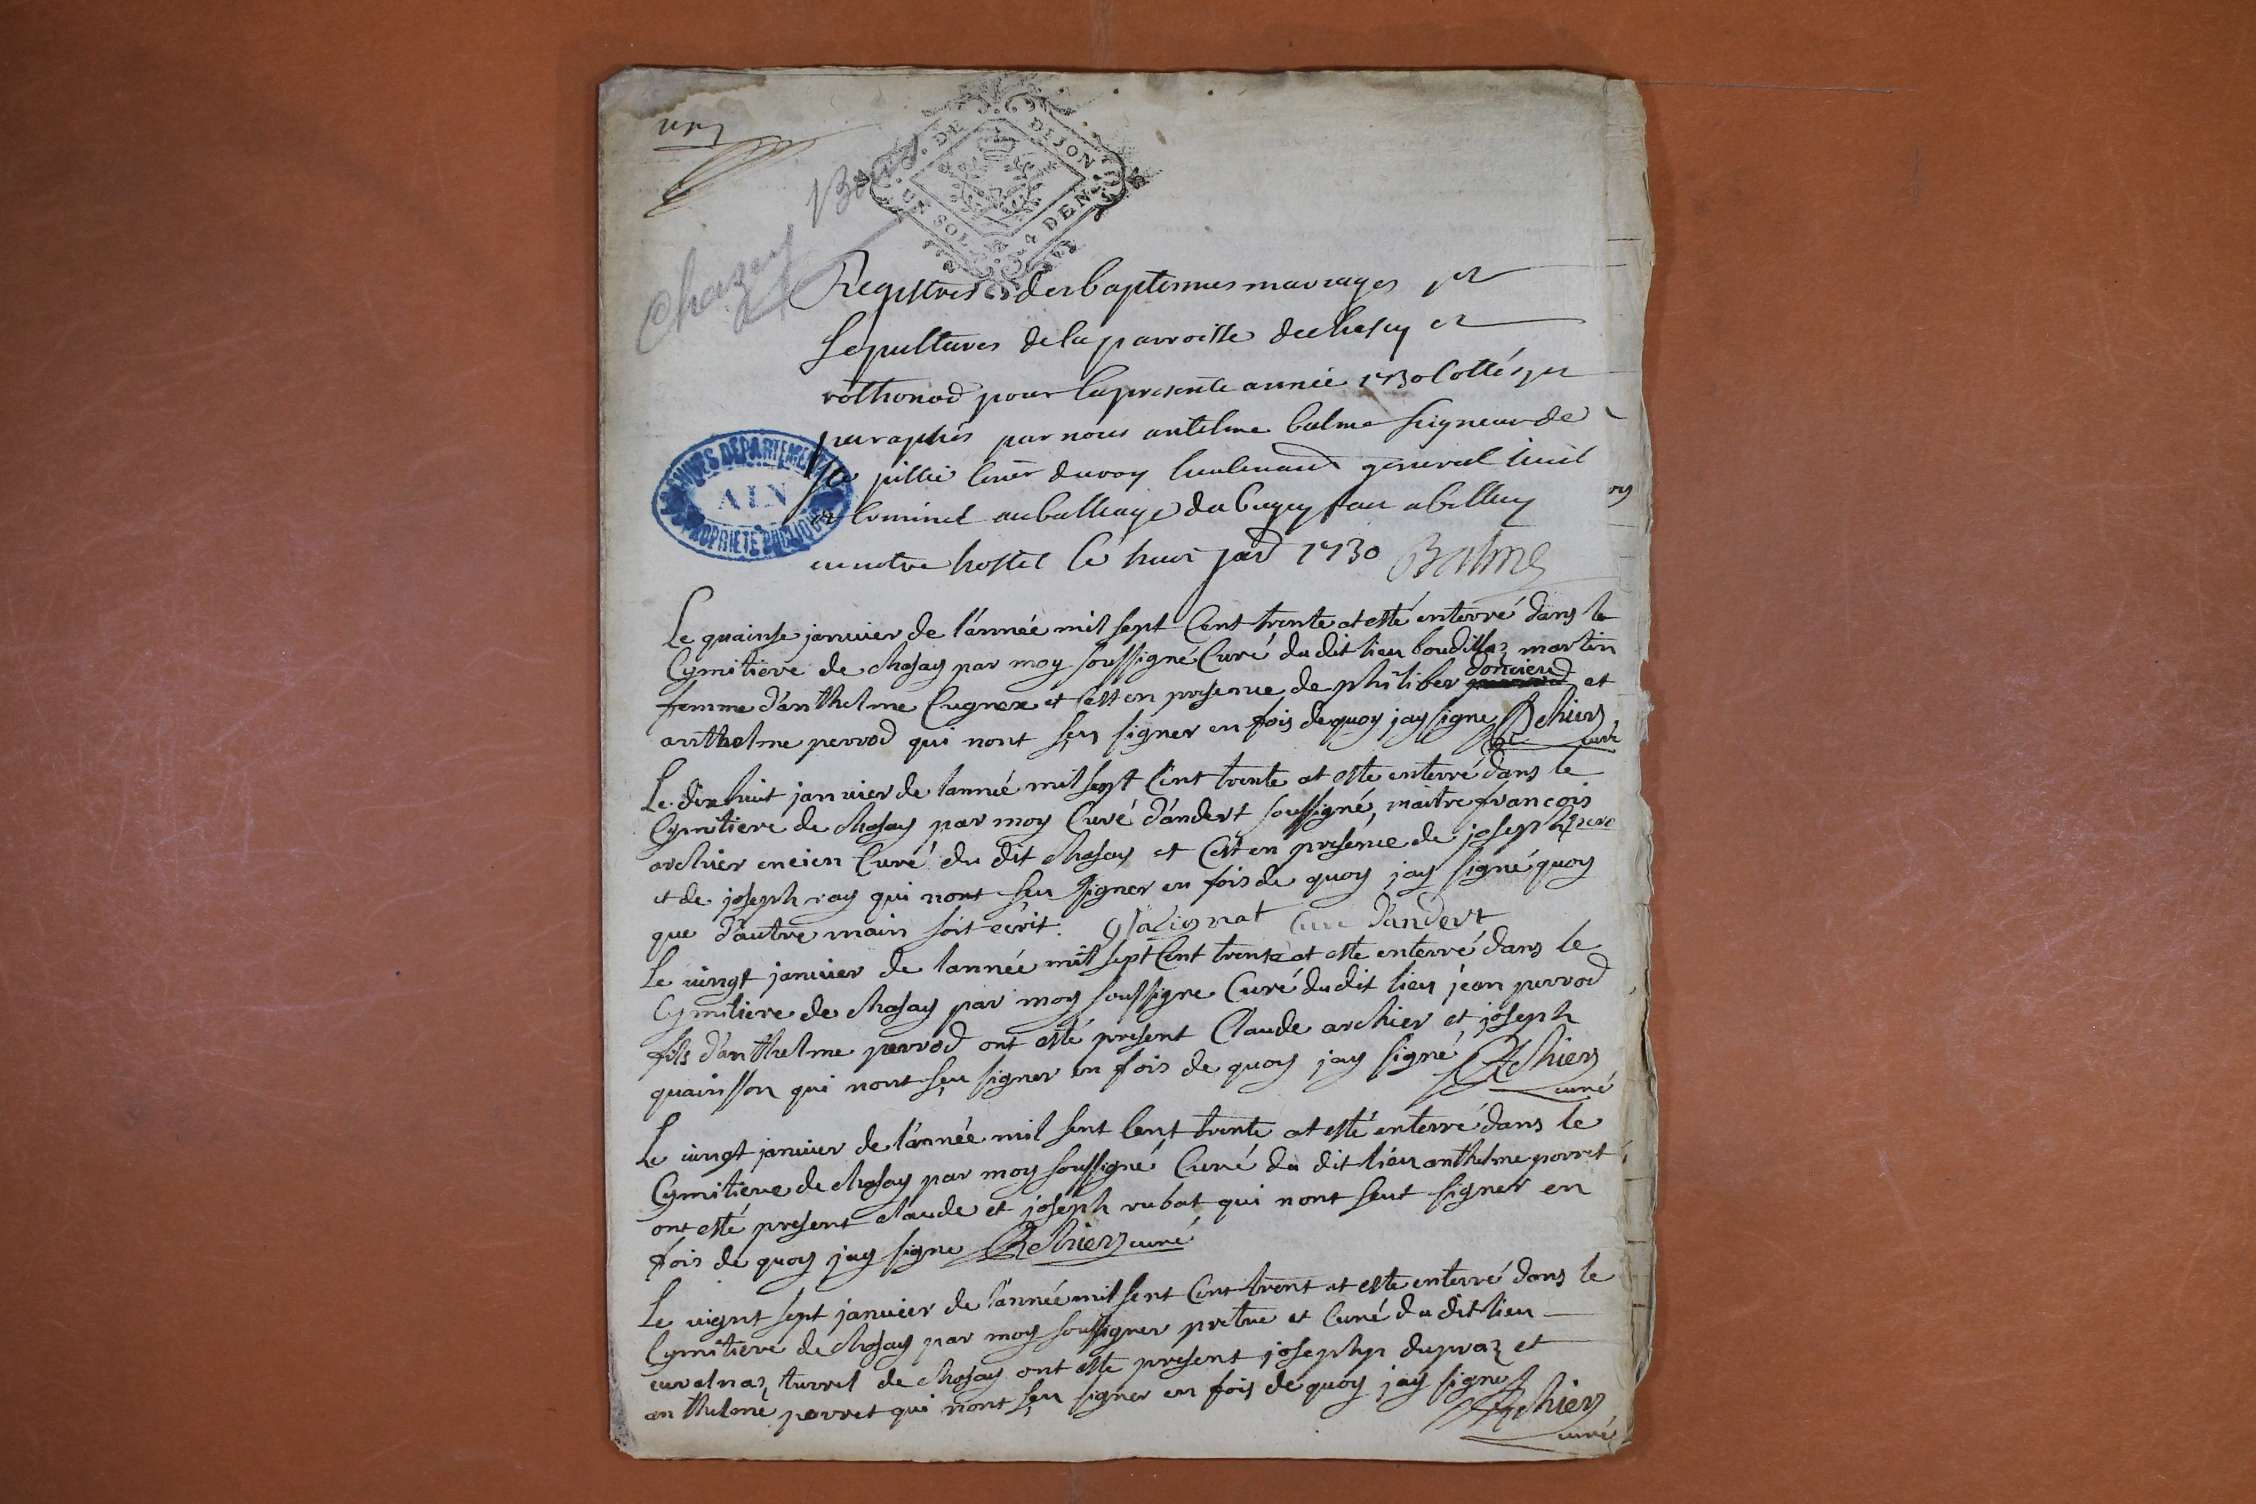 un
DE DIJON
UN SOL 4 DEN
Chazey Bons
Registres des baptesmes mariages et
sepultures de la parroisse de chasey et
rothonod pour la presente année 1730 Cottés et
paraphés par nous antelme balme seigneur de
du roy lieutenant general Civil
et Criminel au balliage du bugey fait a belley
en notre hostel le huit janr 1730 Balme
ARCHIVES DEPARTEMENTALES
AIN
PROPRIETE PUBLIQUE
Le quainse janvier de l'année mil sept Cent trente at esté enterré dans le
Cymitiere de chasay par moy soussigné Curé du dit lieu boudillaz martin
femme d'anthelme Cugnex et cest en presence de philiber doncieud et
anthelme perrod qui nont sçu signer en fois de quoy jay signe Archier
curé
Le dixhuit janvier de lanneé mil sept Cent trente at esté enterré dans le
Cymitiere de chasay par moy Curé d'andert soussigné, maitre francois
archier encien Curé du dit chasay et C'est en presence de joseph
et de joseph ray qui nont sçu signer en fois de quoy jay signé quoy
que d'autre main soit ecrit. Cure d'andert
Le vingt janvier de lannée mil sept Cent trente at este enterré dans le
Cymitiere de chasay par moy soussigne Curé du dit lieu jean perrod
fils d'anthelme perrod ont esté present Claude archier et joseph
quainsson qui nont sçu signer en fois de quoy jay signé Archier
curé
Le vingt janvier de l'année mil sent Cent trente at esté enterré dans le
Cymitiere de chasay par moy soussigné Curé du dit lieu anthelme perret
ont esté present claude et joseph rubat qui nont seut signer en
fois de quoy jay signe Archier curé
Le vignt sept janvier de l'année mil sent Cent trent at este enterré dans le
Cymitiere de chasay par moy soussigner pretre et Curé du dit lieu
turrel de chasay ont este present josephp dupraz et
anthelme perret qui nont sçu signer en fois de quoy jay signe Archier
curé